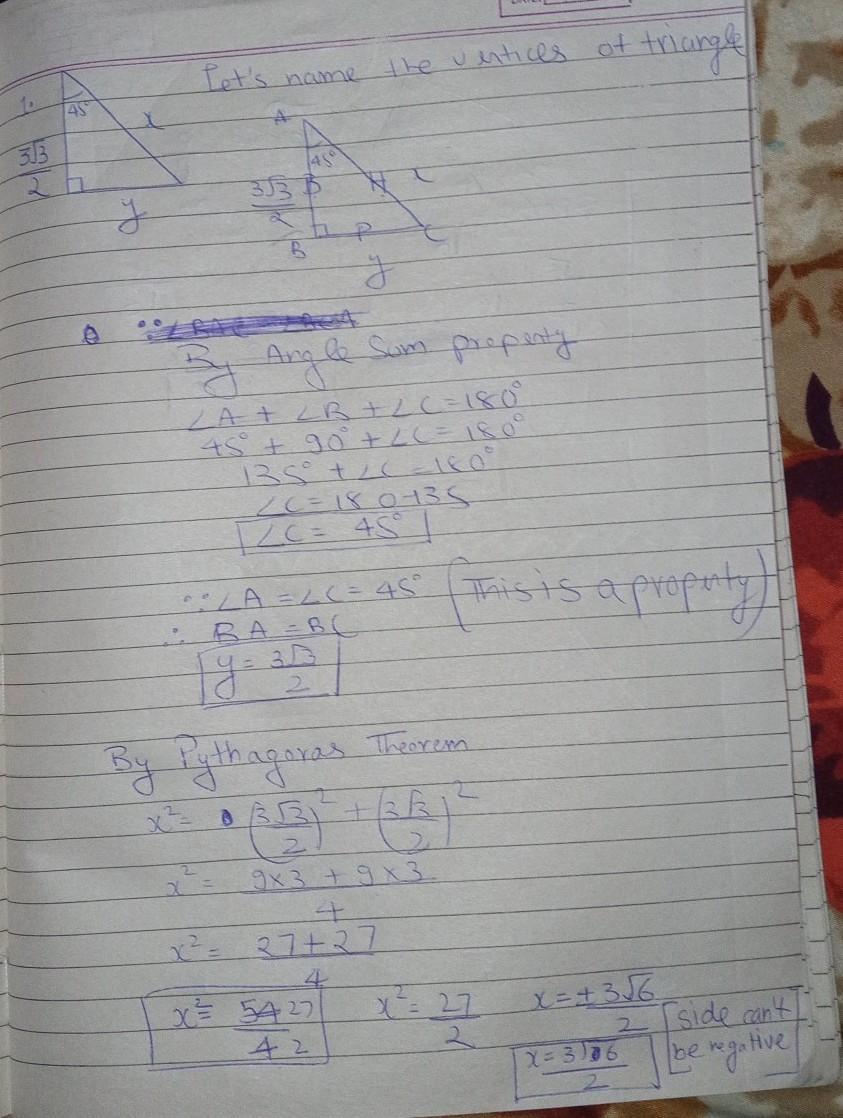 Let's name the vertices of triangle
1.
45°
x
3√3
2
y
A
45°
3√3
2
B
H
x
B
P
C
y
By Angle Sum property
∠A + ∠B + ∠C = 180°
45° + 90° + ∠C = 180°
135° + ∠C = 180°
∠C = 180-135
∠C = 45°
∵ ∠A = ∠C = 45° (This is a property)
∴ BA = BC
y = 3√3
2
By Pythagoras Theorem
x² = (3√3/2)² + (3√3/2)²
x² = 9×3 + 9×3
4
x² = 27+27
4
x² = 54 27
4 2
x² = 27
2
x = ±3√6
2
[side can't
be negative]
x = 3√6
2